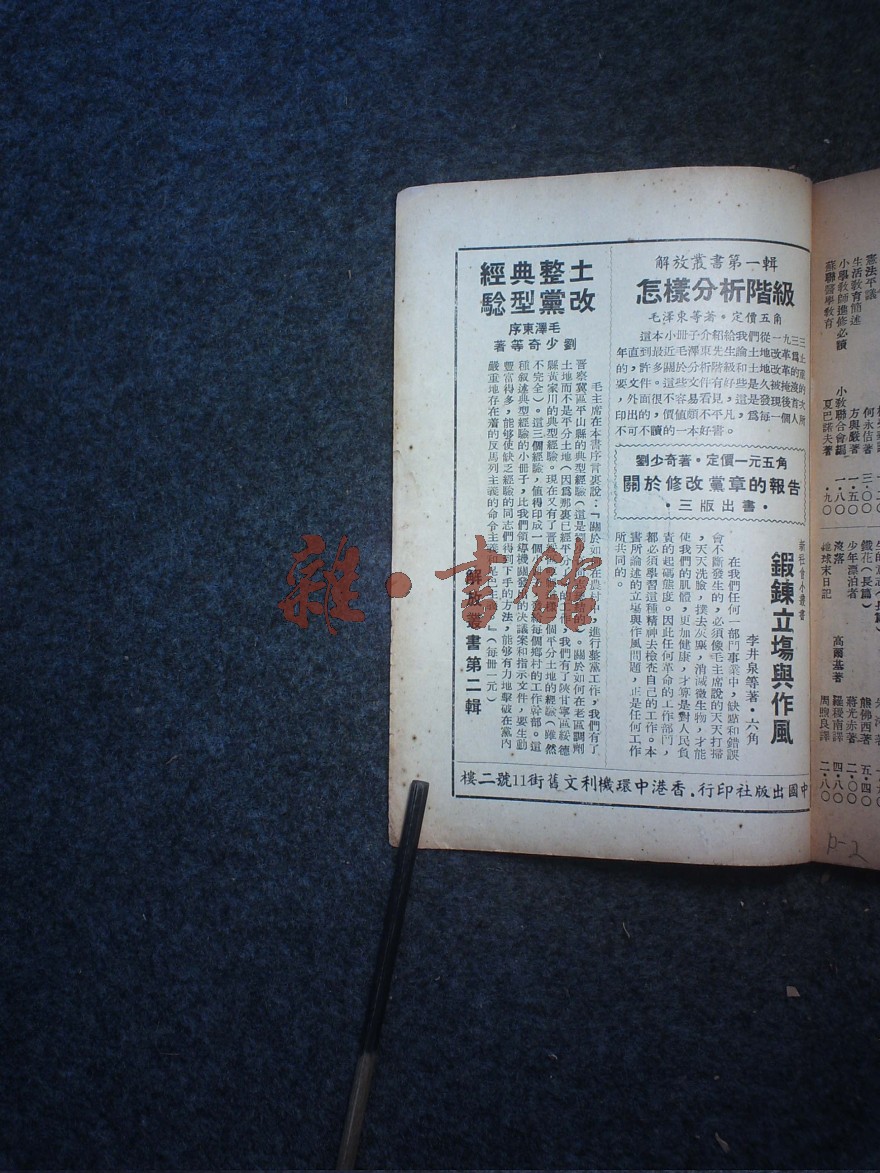 解放叢書第一輯
怎樣分析階級
毛澤東等著・定價五角
這本小冊子介紹給我們從一九三三
年直到最近毛澤東先生論土地改革爲止
的，許多關於分析階級和土地改革的重
要文件。這些文件有好些是久被掩沒的
，外面很不容易看見，這是發現後首次
印出的，價値頗不平凡，爲每一個人所
不可不讀的一本好書。
劉少奇著・定價一元五角
關於修改黨章的報告
・三版出書・
新社會小叢書
鍛鍊立場與作風
李井泉等著・六角
在我們任何一部門事業中，缺點和錯誤
會不斷發生的，必須像毛主席說的天天打掃
，天天洗臉，撲去灰塵，消滅微生物，才能
使我們的肌體，更加健康，才算是對人民負
責的起碼態度。因此任何革命的工作部門，
都必須學習這種精神去檢查自己的工作。本
書所論述的立場與作風問題，正是任何工作
所共同的。
土改
整黨
典型
經騐
毛澤東序
劉少奇等著
毛主席在本書序言裏說：『關於如何在農村進行整黨工作，我們有了
晋察冀區平山縣的典型經驗
土地而不是平分土地（因爲那裏已經平分
縣黃家川的典型經驗。現在又有了晋
不完全）。這三個經驗，値得印成一個小
種叙述典型經驗的小冊子，比我們領導機關發
的決議案和指示文件，要生動
豐富得多，能够使缺乏經驗的同志們得到下手的方法，能够有力地擊破在黨內
嚴重地存在著的反馬列主義的命令主義和尾巴主義』（每冊一元）
解放叢書第二輯
中國出版社印行．香港中環機利文舊街11號二樓
憲法平議
何永佶著
三・〇〇
生活教育簡述
方與嚴著
一・五〇
小學教師進修必讀
小教聯合會編
一・八〇
蘇聯醫學教育
夏巴諾夫著
・九〇
鐵花（長篇）
熊佛西著
五・四〇
少年漂泊者
蔣光赤著
二・〇〇
淹落
高爾基著
羅稷南譯
四・八〇
地球末日記
周煦良譯
二・八〇
P-2
雜・書館